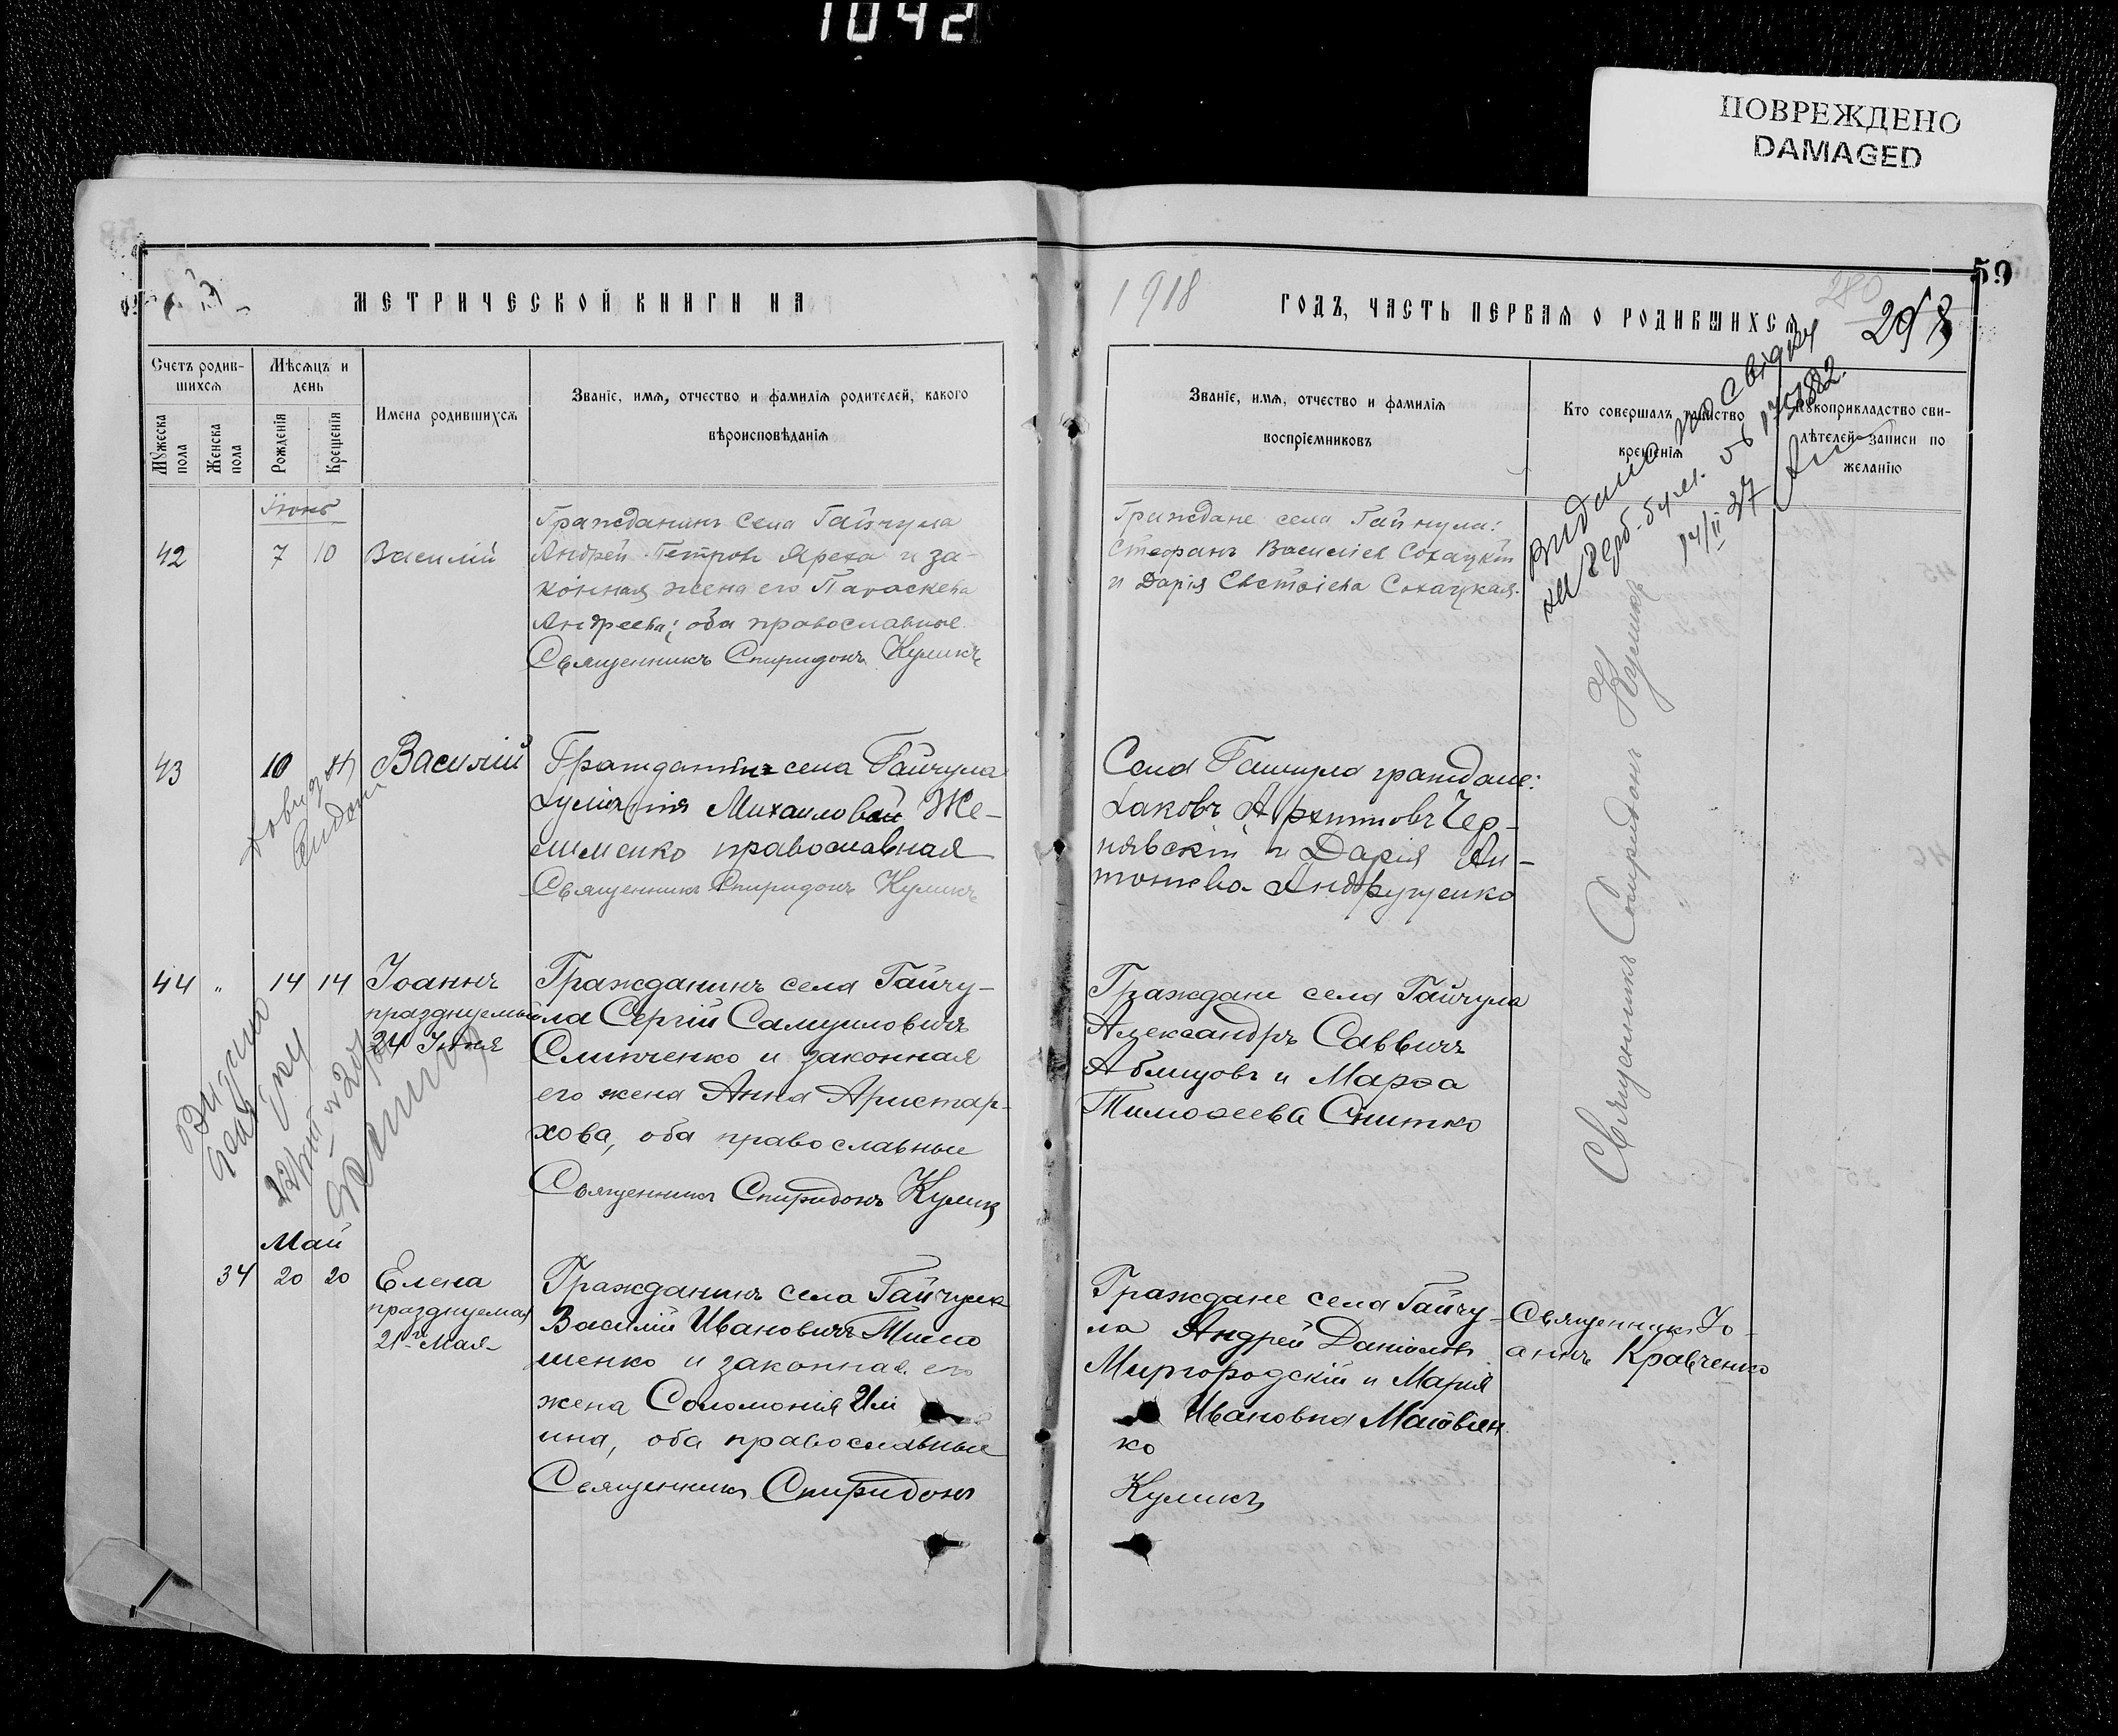 1042
ПОВРЕЖДЕНО
DAMAGED
59
МЕТРИЧЕСКОЙ КНИГИ НА
1918
ГОДЪ, ЧАСТЬ ПЕРВАЯ О РОДИВШИХСЯ
280
Счетъ родив-
шихся
Мужеска
пола
Женска
пола
Мѣсяцъ и
день
Рожденія
Крещенія
Имена родившихся
Званіе, имя, отчество и фамилія родителей, какого
вѣроисповѣданія
Званіе, имя, отчество и фамилія
воспріемниковъ
Кто совершалъ таинство
крещенія
Рукоприкладство сви-
дѣтелей записи по
желанію
Іюнь
42 7 10 Василій
Гражданинъ села Гайчула
Андрей Петровъ Яреха и за-
конная жена его Параскева
Андреева; оба православные
Священникъ Спиридонъ Куликъ
Граждане села Гайчула:
Стефанъ Василіев Сохацкій
и Дарія Евстаіева Сохацкая.
43 10 Василій
Гражданка села Гайчула
Михаилова Же-
православная
Священникъ Спиридонъ Куликъ
Села Гайчула граждане:
Іаковъ Архиповъ Чер-
нявскій и Дарія Ан-
тоніева Андрущенко
44 " 14 14 Іоаннъ
празднуемый
24 Іюня
Гражданинъ села Гайчу-
ла Сергій Самуиловичъ
Слинченко и законная
его жена Анна Аристар-
хова, оба православные
Священникъ Спиридонъ Куликъ
Граждане села Гайчула
Александръ Саввичъ
Аблицовъ и Марѳа
Тимоѳеева Снитко
Священникъ Спиридонъ Куликъ
Видано
Май
34 20 20 Елена
празднуемая
21го Мая
Гражданинъ села Гайчула
Василій Ивановичъ Тимо
шенко и законная его
жена Соломонія Илі
ина, оба православные
Священникъ Спиридонъ
Граждане села Гайчу-
ла Андрей Даніиловъ
Миргородскій и Марія
Ивановна Матвіен
ко
Куликъ
Священникъ Іо-
аннъ Кравченко